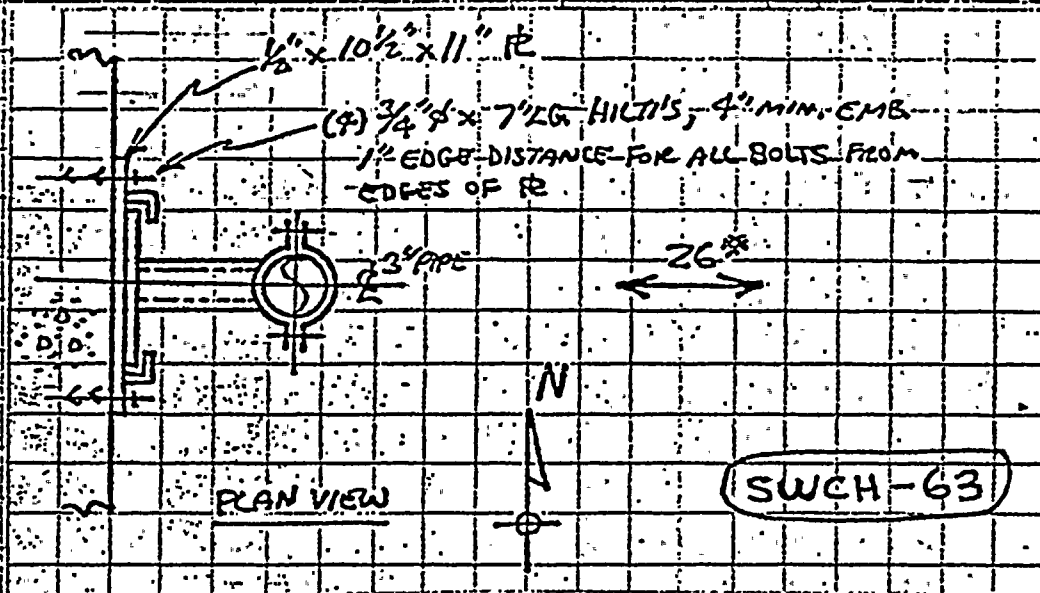 1/2" x 10 1/2" x 11" ⅊
(4) 3/4" φ x 7" LG HILTI'S, 4" MIN. EMB.
1" EDGE DISTANCE FOR ALL BOLTS FROM
EDGES OF ⅊
℄ 3" PIPE
26#
N
PLAN VIEW
SWCH-63